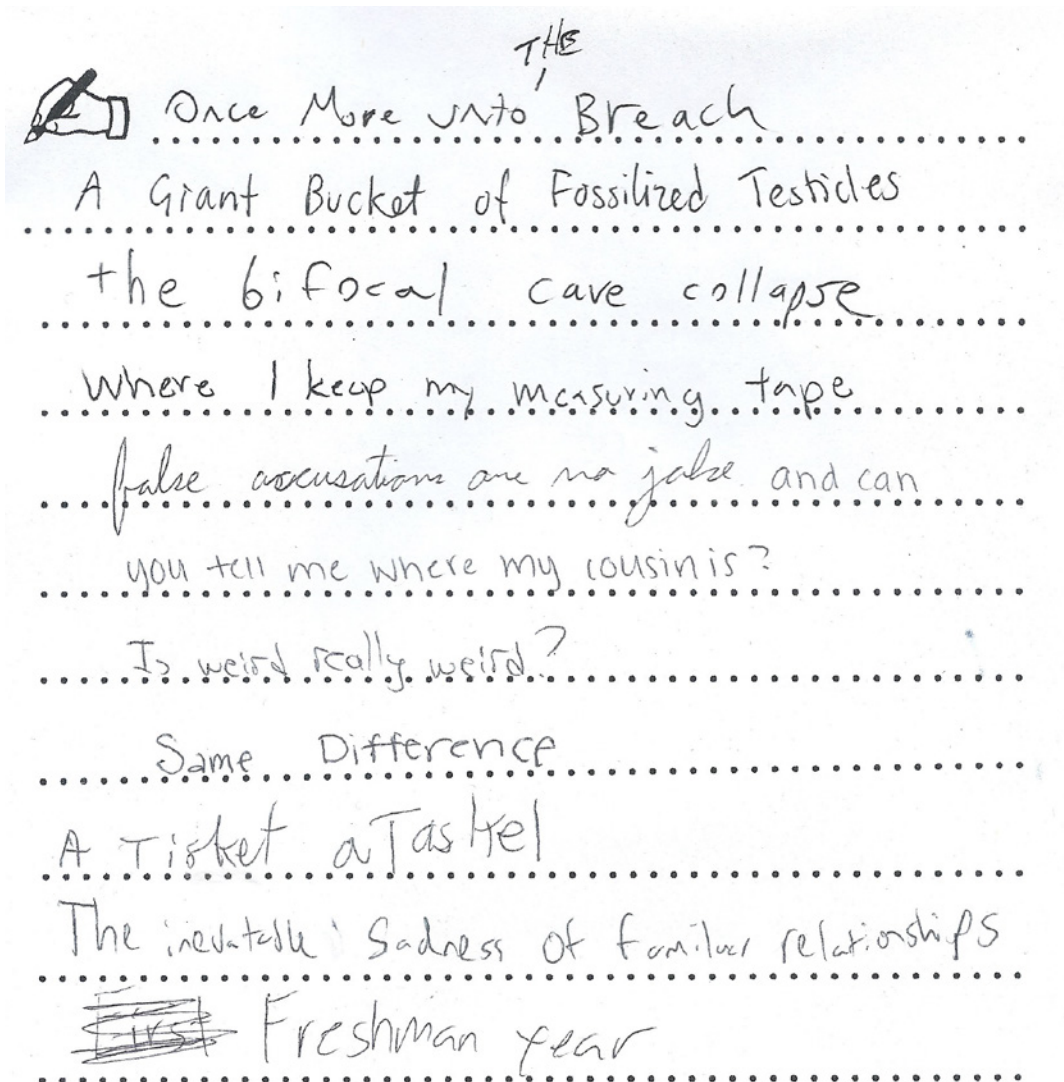 Once More unto THE Breach
A Giant Bucket of Fossilized Testicles
the bifocal cave collapse
Where I keep my measuring tape
false accusations are no joke and can
you tell me where my cousin is?
Is weird really weird?
Same Difference
A Tisket a Tasket
The inevatable Sadness of familiar relationships
First Freshman year